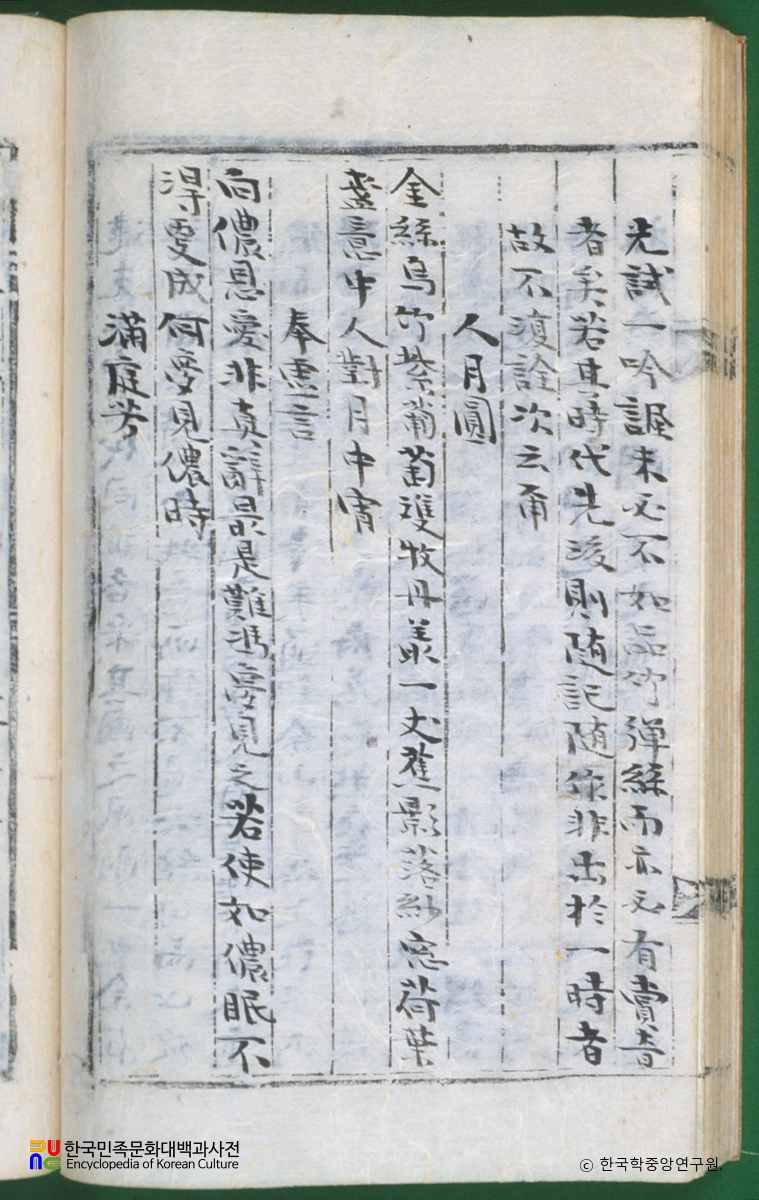 先試一吟謳未必不如品竹彈絲而亦必有賞音
者矣若其時代先後則随記随作非出於一時者
故不復詮次云甭
人月圓
金絲烏竹紫葡萄雙牧丹叢一丈蕉影落紗窓荷葉
盞意中人對月中宵
奉虛言
向儂恩愛非真辭最是難憑夢見之若使如儂眠不
得更成何夢見儂時
滿庭芳
한국민족문화대백과사전
Encyclopedia of Korean Culture
© 한국학중앙연구원